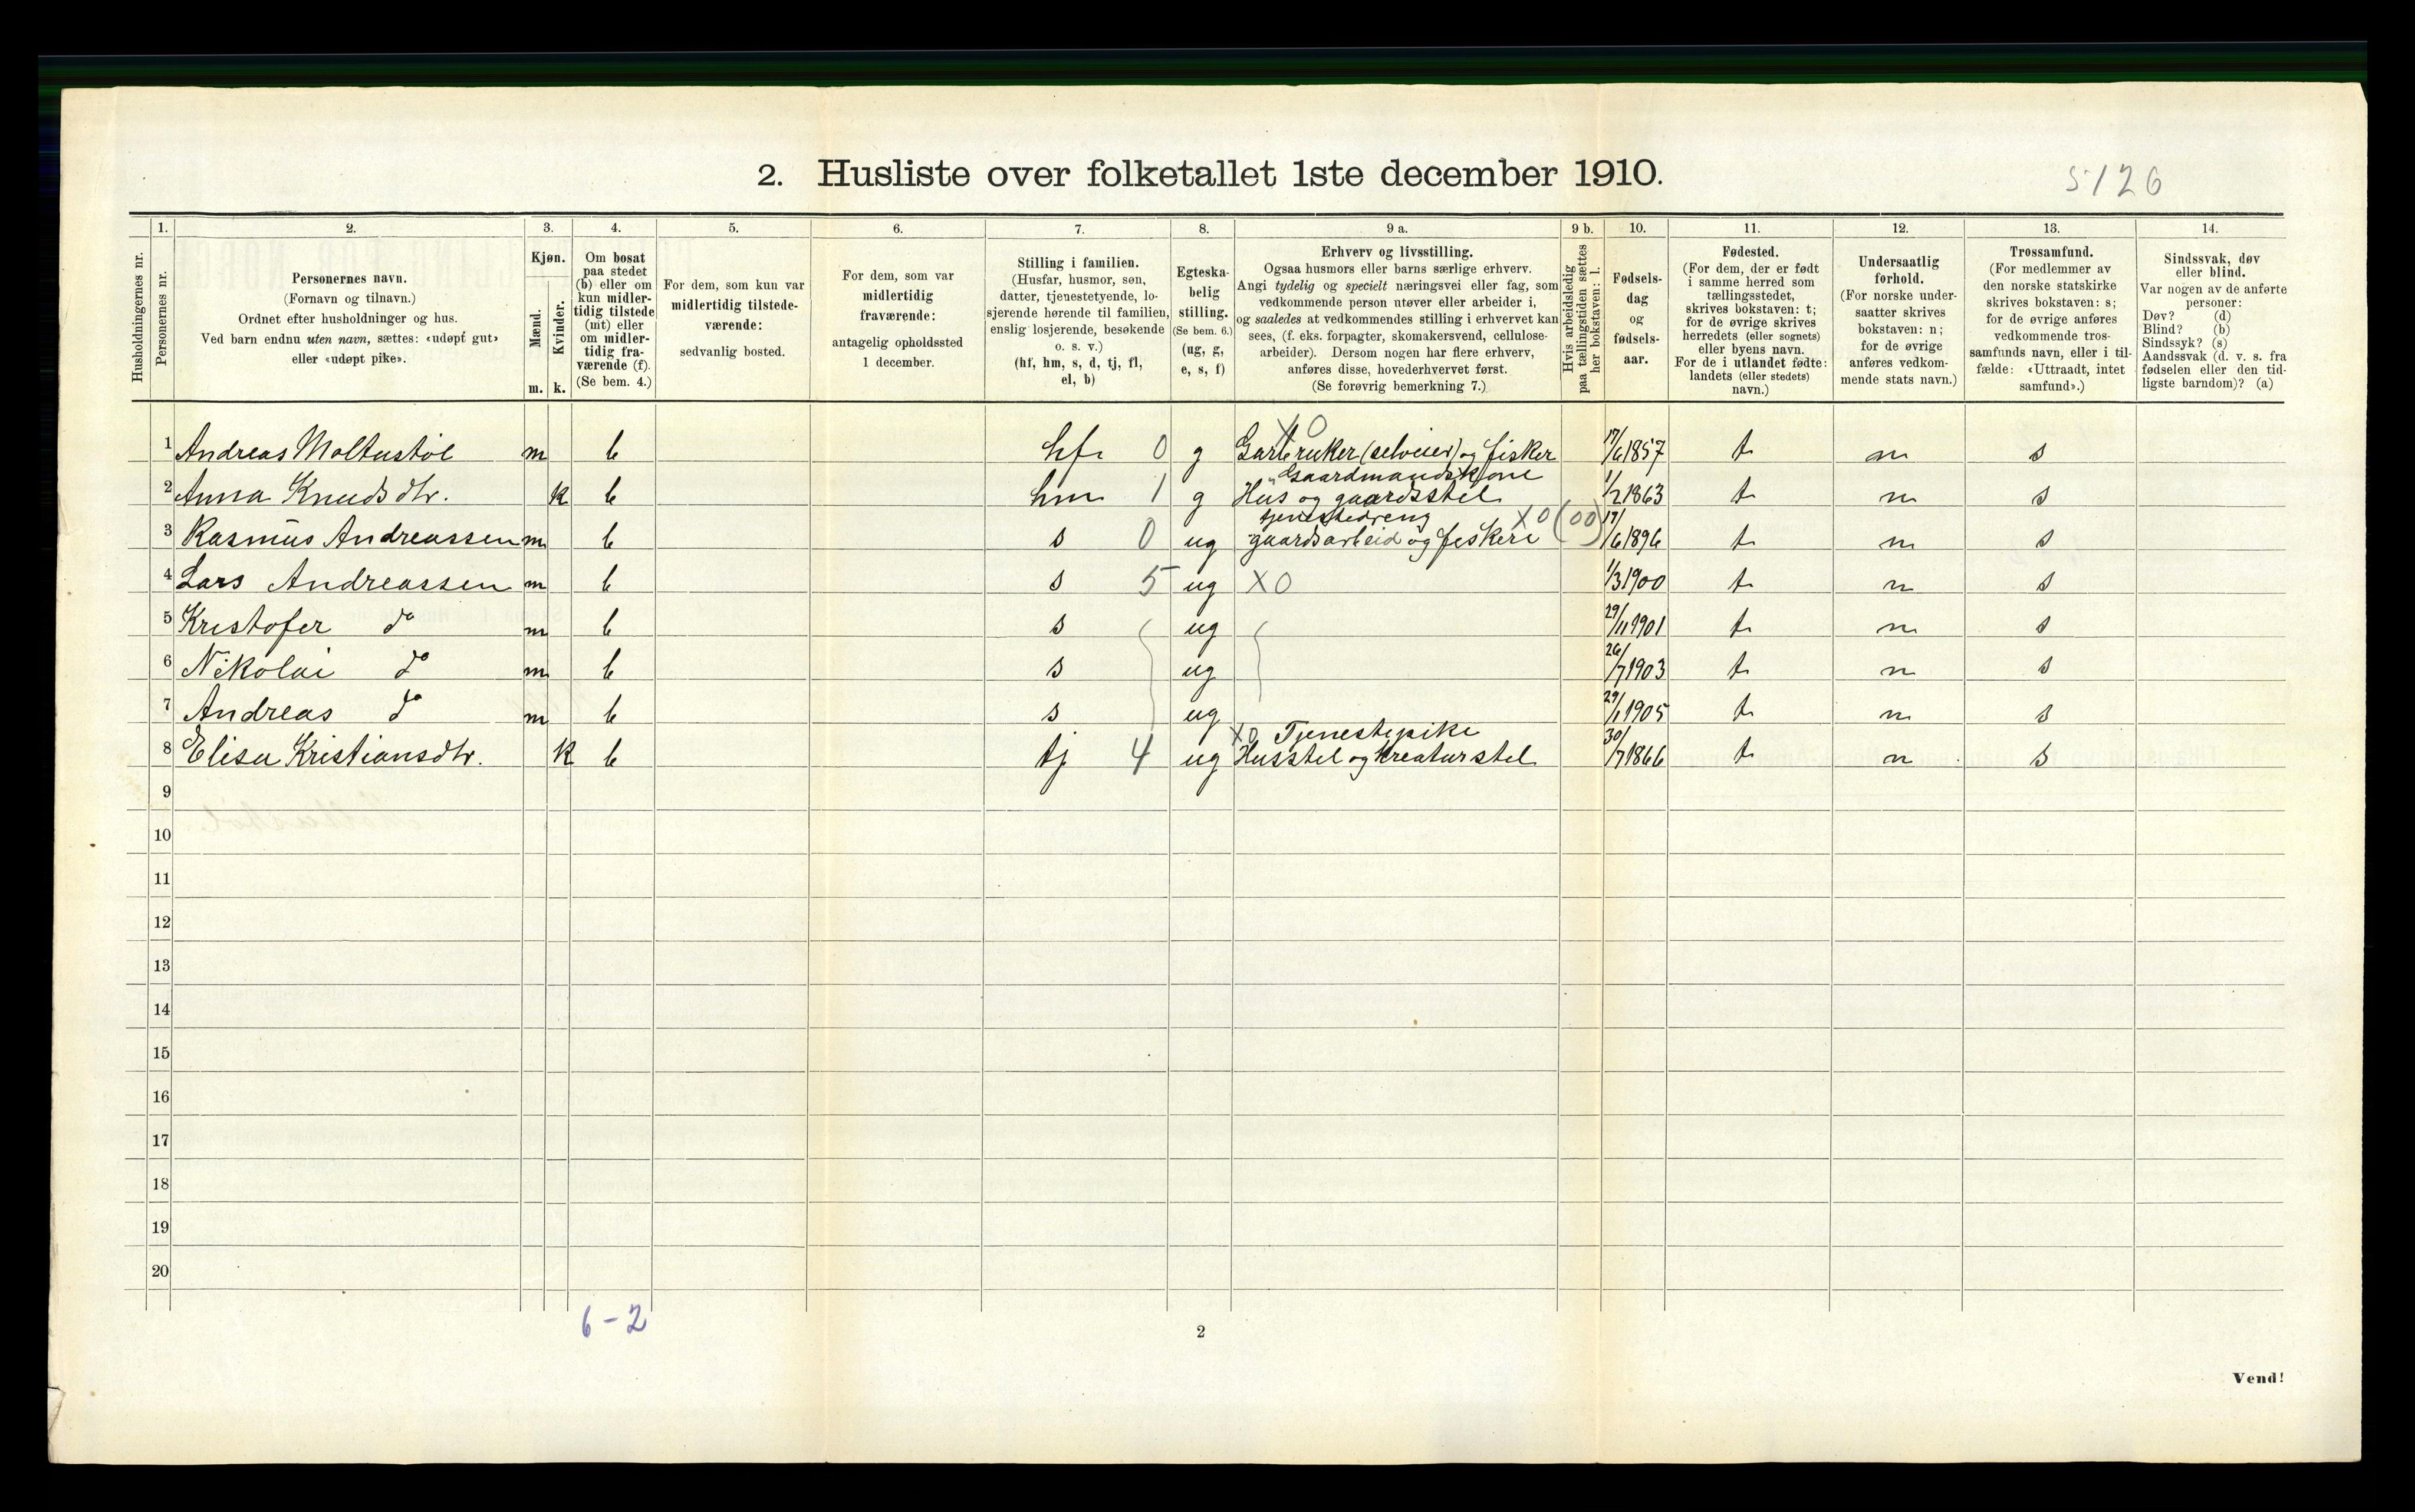 2. Husliste over folketallet 1ste december 1910.
5126
Husholdningernes nr.
1. Personernes nr.
2. Personernes navn.
(Fornavn og tilnavn.)
Ordnet efter husholdninger og hus.
Ved barn endnu uten navn, sættes: «udøpt gut»
eller «udøpt pike».
3. Kjøn.
Mænd. m.
Kvinder. k.
4. Om bosat
paa stedet
(b) eller om
kun midler-
tidig tilstede
(mt) eller
om midler-
tidig fra-
værende (f).
(Se bem. 4.)
5. For dem, som kun var
midlertidig tilstede-
værende:
sedvanlig bosted.
6. For dem, som var
midlertidig
fraværende:
antagelig opholdssted
1 december.
7. Stilling i familien.
(Husfar, husmor, søn,
datter, tjenestetyende, lo-
sjerende hørende til familien,
enslig losjerende, besøkende
o. s. v.)
(hf, hm, s, d, tj, fl,
el, b)
8. Egteska-
belig
stilling.
(Se bem. 6.)
(ug, g,
e, s, f)
9 a. Erhverv og livsstilling.
Ogsaa husmors eller barns særlige erhverv.
Angi tydelig og specielt næringsvei eller fag, som
vedkommende person utøver eller arbeider i,
og saaledes at vedkommendes stilling i erhvervet kan
sees, (f. eks. forpagter, skomakersvend, cellulose-
arbeider). Dersom nogen har flere erhverv,
anføres disse, hovederhvervet først.
(Se forøvrig bemerkning 7.)
9 b. Hvis arbeidsledig
paa tællingstiden sættes
her bokstaven: l.
10. Fødsels-
dag
og
fødsels-
aar.
11. Fødested.
(For dem, der er født
i samme herred som
tællingsstedet,
skrives bokstaven: t;
for de øvrige skrives
herredets (eller sognets)
eller byens navn.
For de i utlandet fødte:
landets (eller stedets)
navn.)
12. Undersaatlig
forhold.
(For norske under-
saatter skrives
bokstaven: n;
for de øvrige
anføres vedkom-
mende stats navn.)
13. Trossamfund.
(For medlemmer av
den norske statskirke
skrives bokstaven: s;
for de øvrige anføres
vedkommende tros-
samfunds navn, eller i til-
fælde: «Uttraadt, intet
samfund».)
14. Sindssvak, døv
eller blind.
Var nogen av de anførte
personer:
Døv? (d)
Blind? (b)
Sindssyk? (s)
Aandssvak (d. v. s. fra
fødselen eller den tid-
ligste barndom)? (a)
X0
1 Andreas Moltustøl m b hf 0 g Garbruker (selveier) og fisker 17/6 1857 t n s
Gaardmandskone
2 Anna Knudsdtr. k b hm 1 g Hus og gaardsstel 1/2 1863 t n s
tjenestedreng X0 (00)
3 Rasmus Andreassen m b s 0 ug gaardsarbeid og fiskeri 17/6 1896 t n s
4 Lars Andreassen m b s 5 ug X0 1/3 1900 t n s
5 Kristofer do m b s ug 29/11 1901 t n s
6 Nikolai do m b s ug 26/7 1903 t n s
7 Andreas do m b s ug 29/1 1905 t n s
X0 Tjenestepike
8 Elisa Kristiansdtr. k b tj 4 ug Husstel og Kreaturstel 30/7 1866 t n s
9
10
11
12
13
14
15
16
17
18
19
20
6-2
2
Vend!